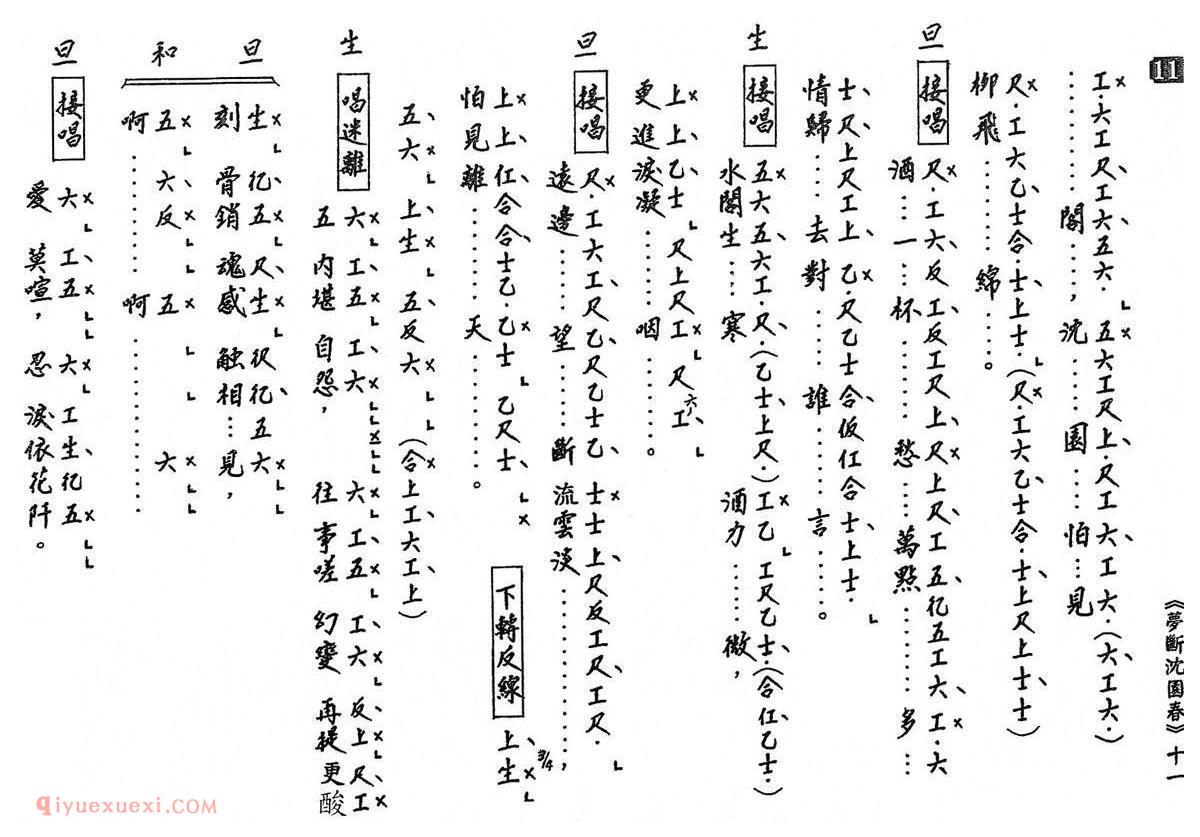 11
《夢斷沈園春》十一
工.六工尺工六五六.五六工尺上.尺工六工六.(六工六.)
……閣……,沈……園…怕…見
尺.工六乙士合士上士.(尺.工六乙士合.士上尺上士士)
柳飛………綿…。
旦
接唱
尺.工六反工反工尺上尺上尺工五㐰五工六工.六
酒…一…杯……愁…萬點……多…
士尺上尺工上乙尺乙士合仮仜合士上士.
情歸…去對……誰……言……。
生
接唱
五六五六工.尺.(乙士上尺.)工乙工尺乙士.(合仜乙士.)
水閣生…寒酒力……微,
上上乙士尺上尺工尺六工
更進淚凝……咽……。
旦
接唱
尺.工六工尺乙尺乙士乙士士上尺反工尺工尺.
遠邊……望……斷流雲淡…………,
上上仜合合士乙.乙士乙尺士
怕見離……天………。
下轉反線
上生
3/4
五六上生五反六(合上工六工上)
生
唱迷離
六工五工六六工五工六反上尺工
五內堪自怨,往事嗟幻變再提更酸
旦
生㐰五尺生㐰㐰五六
刻骨銷魂感触相…見,
和
五六反五六
啊…………啊…………
旦
接唱
六工五六工生㐰五
愛莫喧,忍淚依花阡。
qiyuexuexi.COM